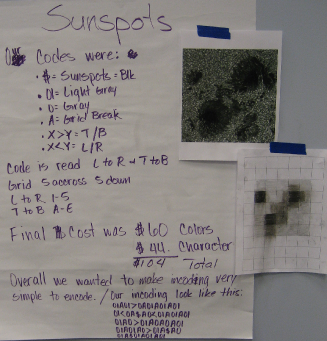 Sunspots
Our Codes were:
• $ = Sunspots = Blk
• 01 = Light Gray
• 0 = Gray
• A = Grid Break
• X>Y = T/B
• X<Y = L/R
Code is read L to R → T to B
Grid 5 across 5 down
L to R 1-5
T to B A-E
Final Cost was $60 Colors
$44. Character
$104 Total
Overall we wanted to make incoding very
simple to encode. / Our incoding look like this: